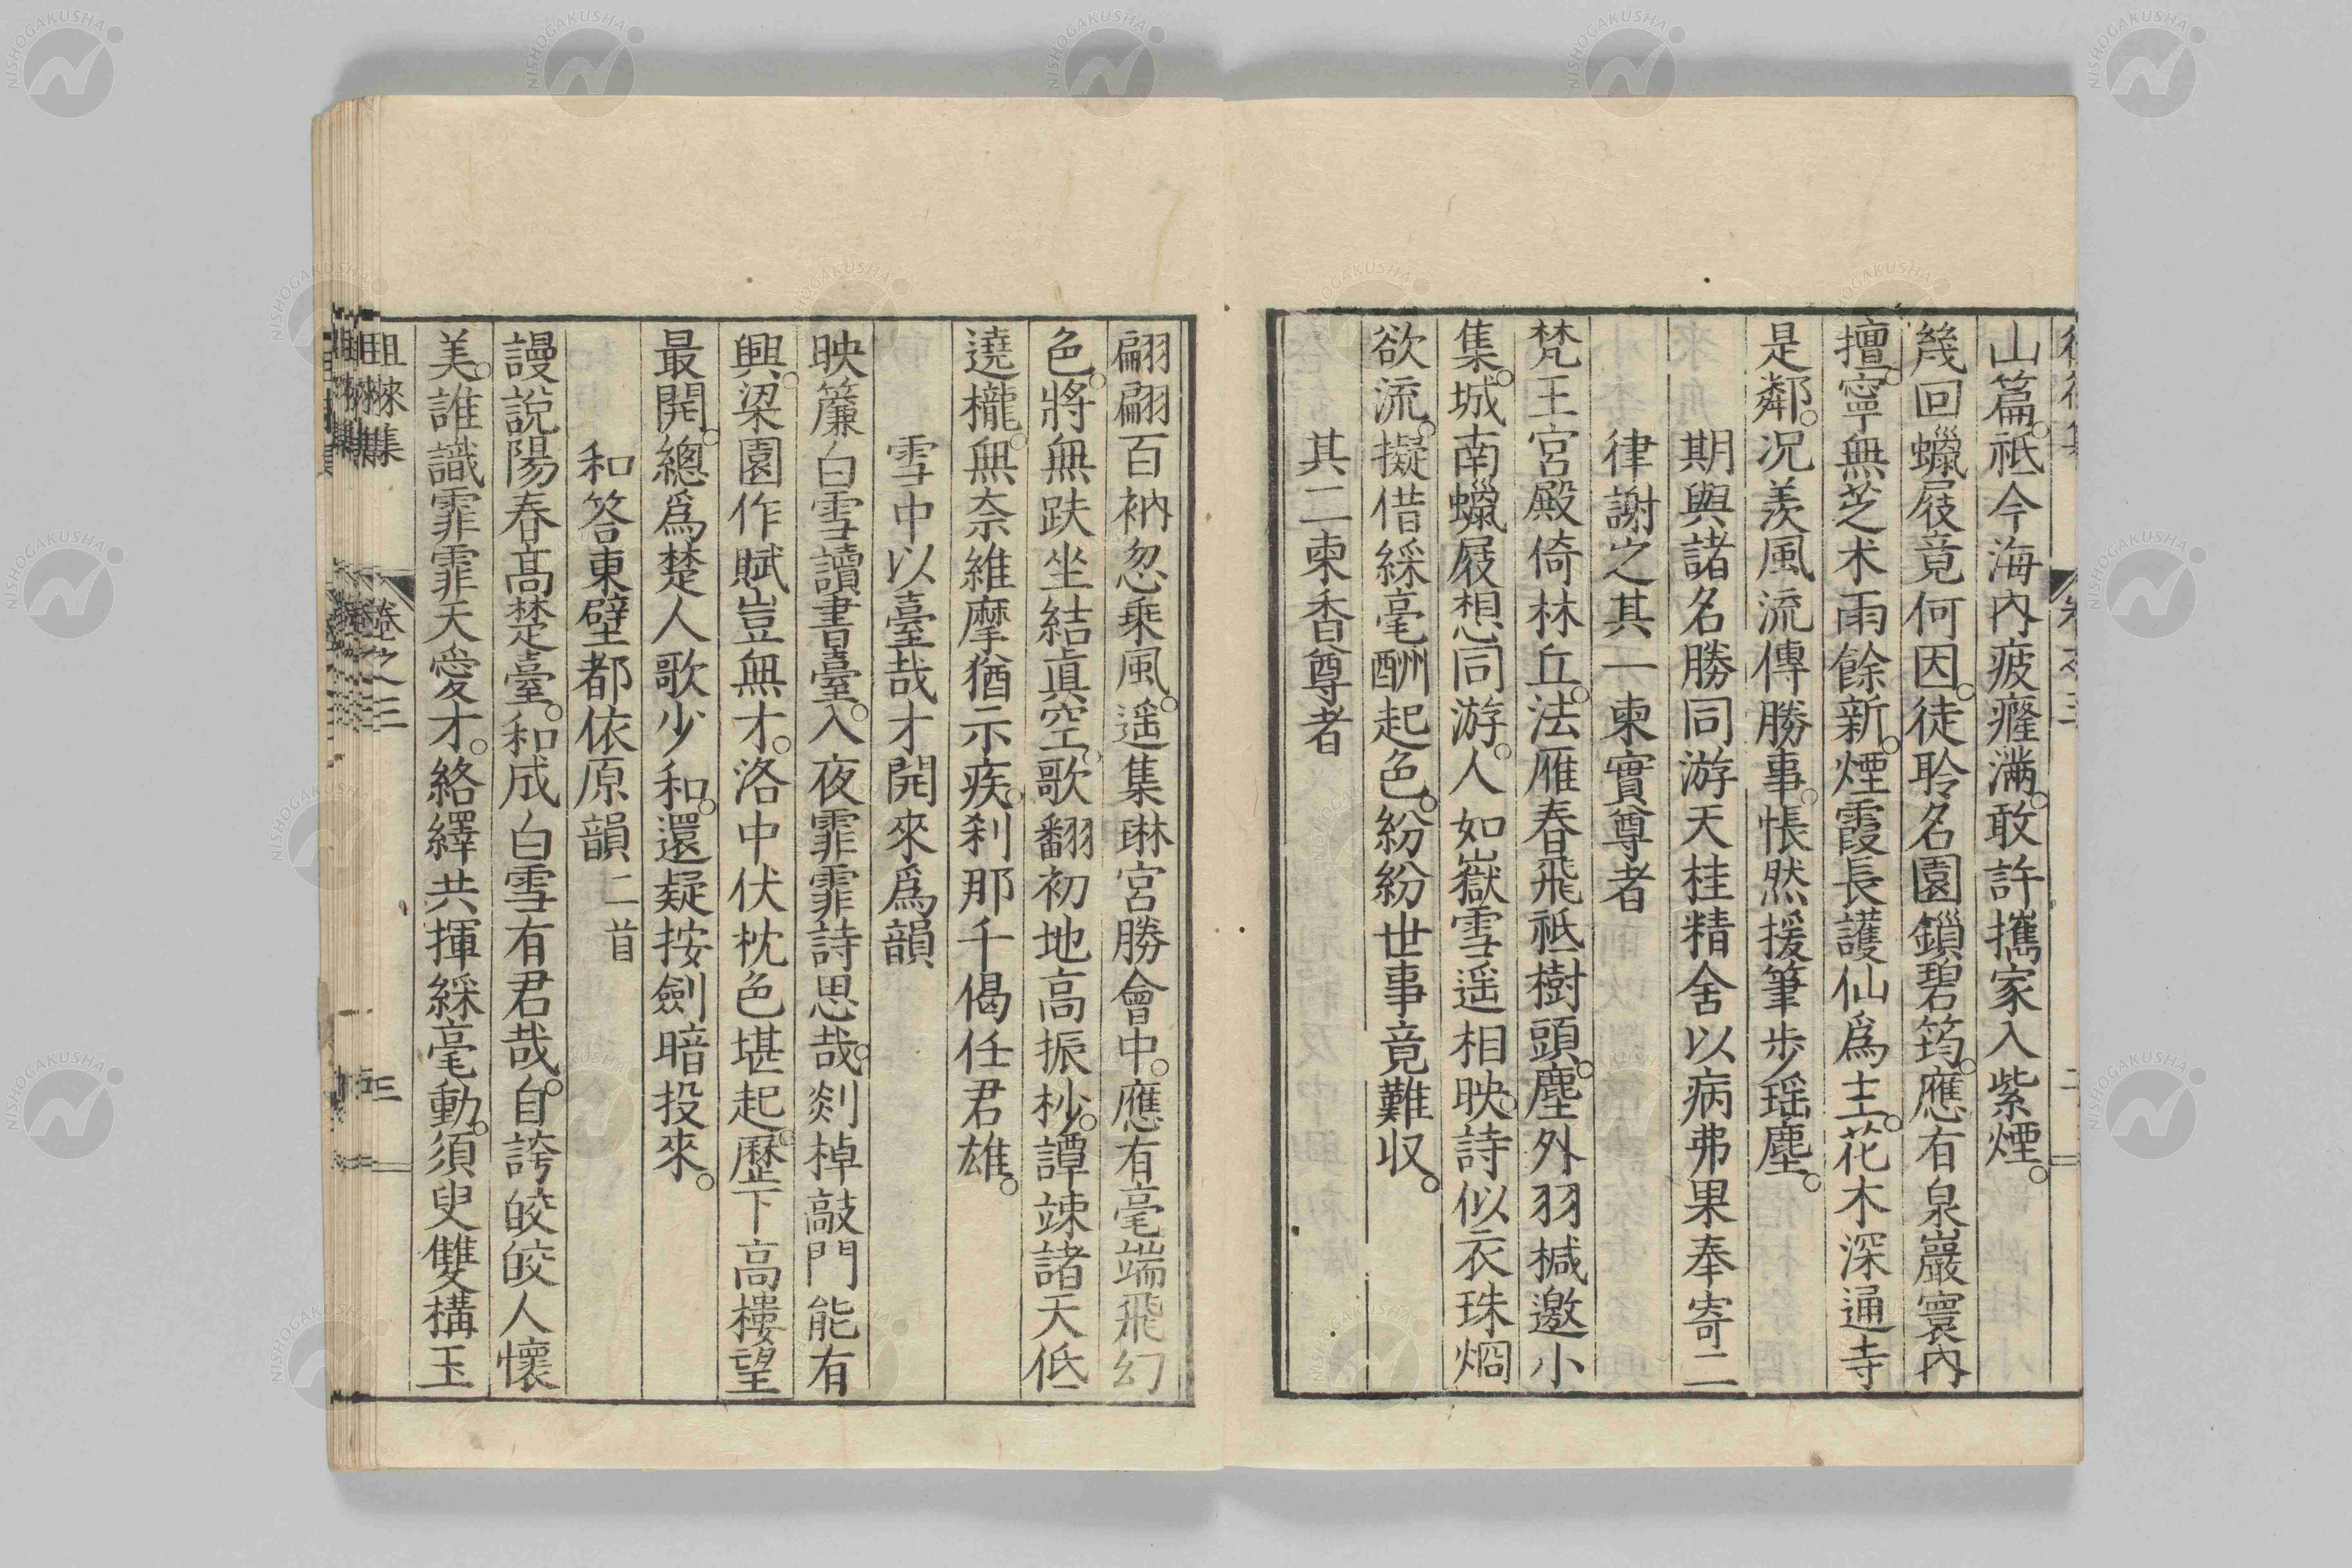 山篇。祇今海內疲癃滿。敢許攜家入紫煙。
幾回蠟屐竟何因。徒聆名園鎖碧筠。應有泉巖寰內
擅。寧無芝朮雨餘新。煙霞長護仙爲主。花木深通寺
是鄰。況羨風流傳勝事。悵然援筆步瑤塵。
期與諸名勝同游天桂精舍以病弗果奉寄二
律謝之其一柬實尊者
梵王宮殿倚林丘。法雁春飛祇樹頭。塵外羽椷邀小
集。城南蠟屐想同游。人如嶽雪遥相映。詩似衣珠烱
欲流。擬借綵毫酬起色。紛紛世事竟難収。
其二柬香尊者
翩翩百衲忽乘風。遥集琳宮勝會中。應有毫端飛幻
色。將無趺坐結眞空。歌翻初地高振杪。譚竦諸天低
遶櫳。無奈維摩猶示疾。刹那千偈任君雄。
雪中以臺哉才開來爲韻
映簾白雪讀書臺。入夜霏霏詩思哉。剡棹敲門能有
興。梁園作賦豈無才。洛中伏枕色堪起。歷下高樓望
最開。總爲楚人歌少和。還疑按劍暗投來。
和答東壁都依原韻二首
謾說陽春高楚臺。和成白雪有君哉。自誇皎皎人懷
美。誰識霏霏天愛才。絡繹共揮綵毫動。須臾雙構玉
徂徠集
卷之三
三